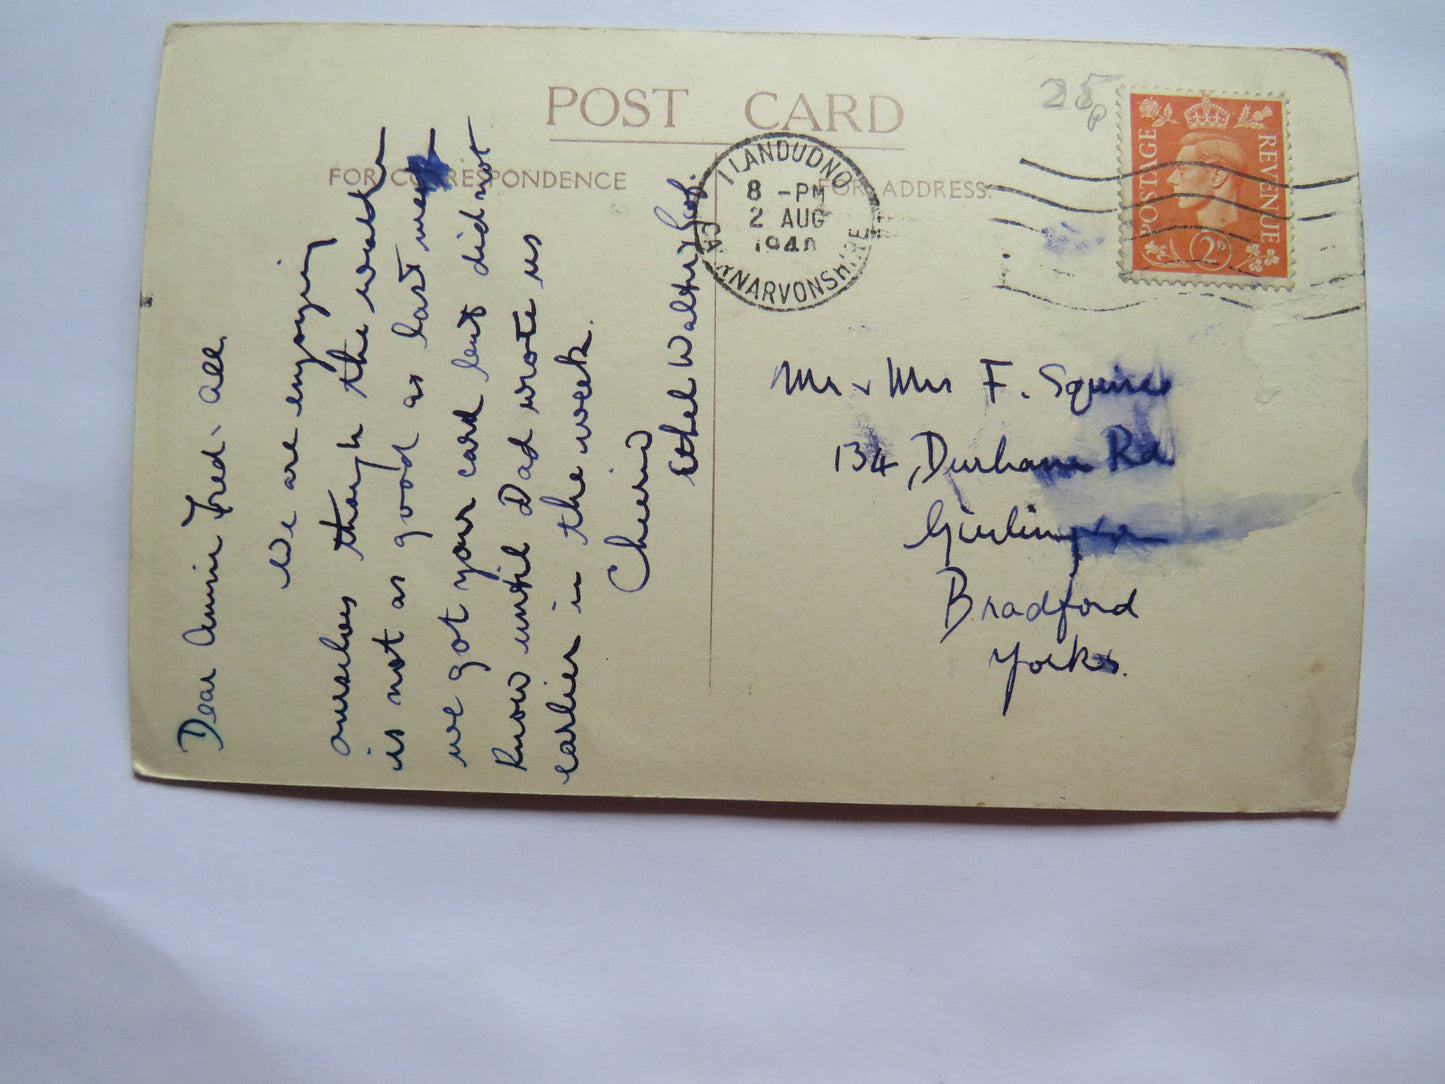 POST CARD
FOR CORRESPONDENCE
FOR ADDRESS.
25p
LLANDUDNO
8 - PM
2 AUG
194
CAERNARVONSHIRE
POSTAGE
REVENUE
2D
Dear Annie Fred & all.
We are enjoying
ourselves though the weather
is not as good as last week
we got your card but did not
know until Dad wrote us
earlier in the week.
Cheerio
Ethel Walter &
Mr & Mrs F. Squires
134, Durham Rd
Girlington
Bradford
Yorks.